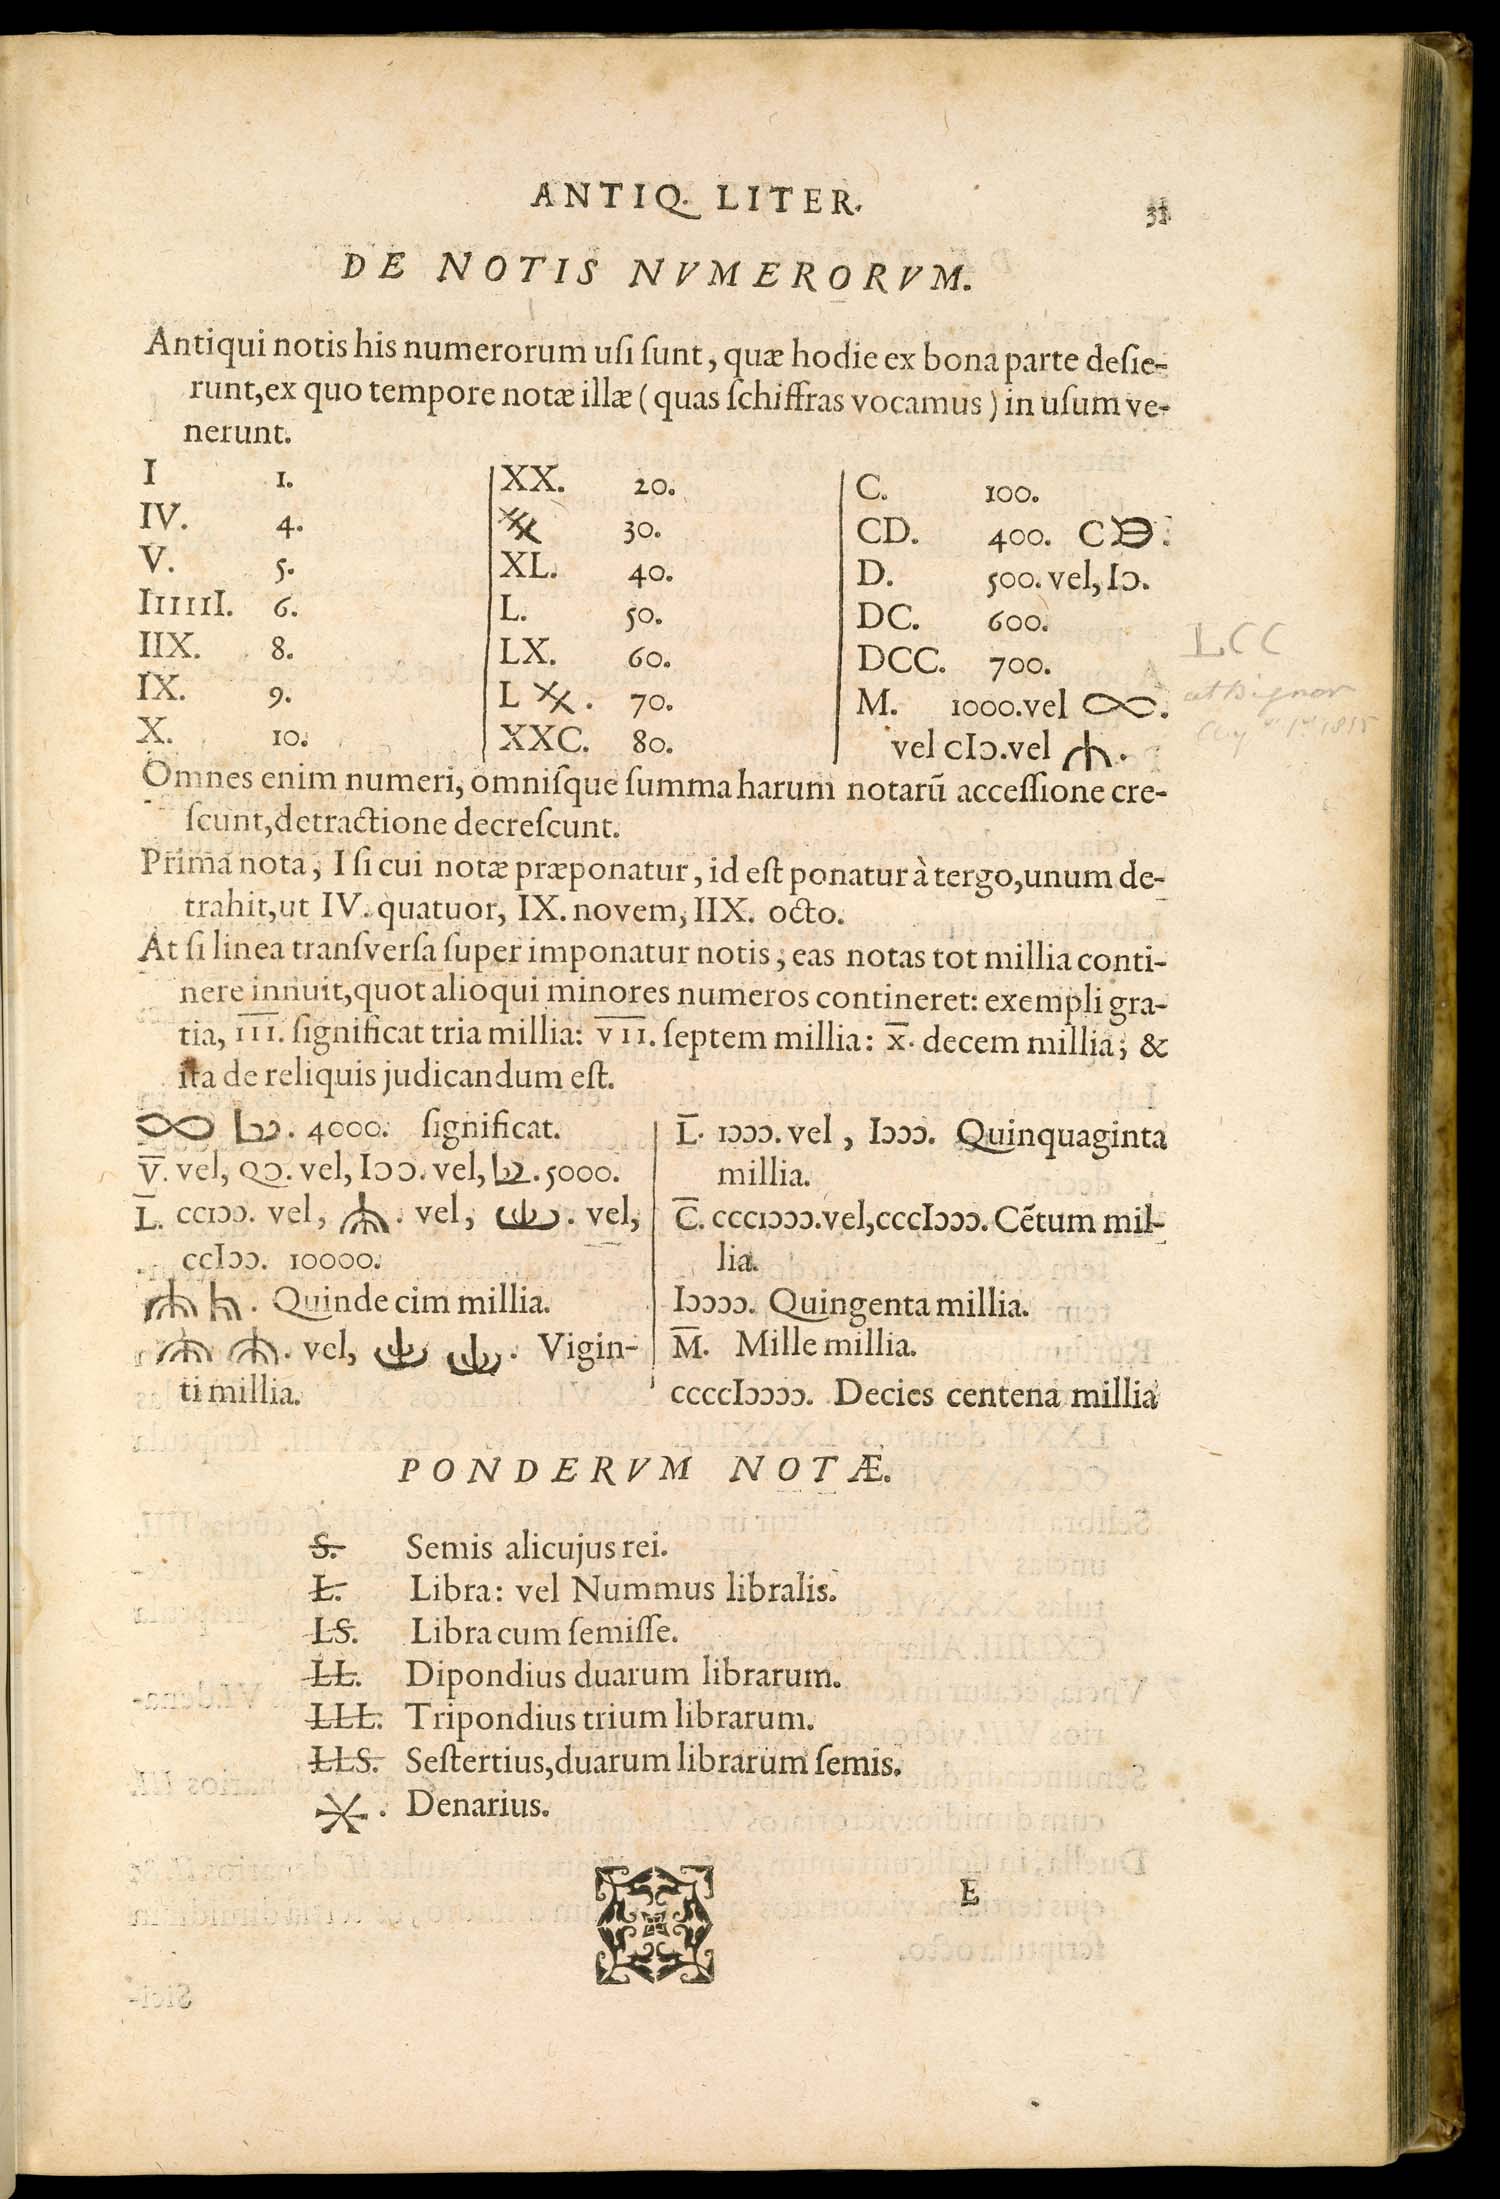 ANTIQ. LITER.
31
DE NOTIS NVMERORVM.
Antiqui notis his numerorum uſi ſunt, quæ hodie ex bona parte deſie-
runt, ex quo tempore notæ illæ (quas ſchiffras vocamus) in uſum ve-
nerunt.
I 1.
IV. 4.
V. 5.
IIIIII. 6.
IIX. 8.
IX. 9.
X. 10.
XX. 20.
XXX 30.
XL. 40.
L. 50.
LX. 60.
L XX. 70.
XXC. 80.
C. 100.
CD. 400.
D. 500. vel, IↃ.
DC. 600.
DCC. 700.
M. 1000. vel ∞.
vel cIↄ. vel
LCC
Omnes enim numeri, omniſque ſumma harum notarũ acceſſione cre-
ſcunt, detractione decreſcunt.
Prima nota, I ſi cui notæ præponatur, id eſt ponatur à tergo, unum de-
trahit, ut IV. quatuor, IX. novem, IIX. octo.
At ſi linea tranſverſa ſuper imponatur notis, eas notas tot millia conti-
nere innuit, quot alioqui minores numeros contineret: exempli gra-
tia, I̅I̅I̅. ſignificat tria millia: V̅I̅I̅. ſeptem millia: X̅. decem millia, &
ita de reliquis judicandum eſt.
∞ 4000. ſignificat.
V̅. vel, vel, Iↄↄ. vel, 5000.
L̅. ccIↄↄ. vel, vel, vel,
ccIↄↄ. 10000.
Quindecim millia.
vel, Vigin-
ti millia.
L̅. Iↄↄↄ. vel, Iↄↄↄ. Quinquaginta
millia.
C̅. cccIↄↄↄ. vel, cccIↄↄↄ. Cẽtum mil-
lia.
Iↄↄↄↄ. Quingenta millia.
M̅. Mille millia.
ccccIↄↄↄↄ. Decies centena millia
PONDERVM NOTÆ.
S. Semis alicujus rei.
L. Libra: vel Nummus libralis.
LS. Libra cum ſemiſſe.
LL. Dipondius duarum librarum.
LLL. Tripondius trium librarum.
LLS. Seſtertius, duarum librarum ſemis.
Denarius.
E